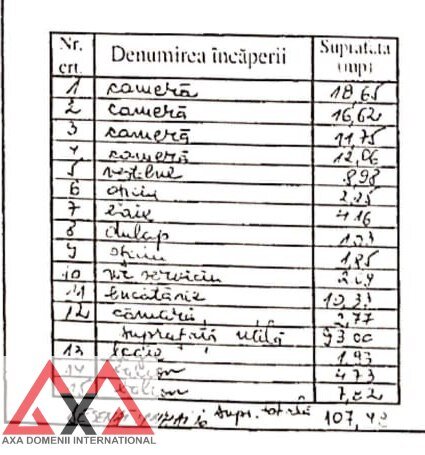 Nr. crt. Denumirea încăperii Suprafața (mp)
1 cameră 18,65
2 cameră 16,62
3 cameră 11,75
4 cameră 12,06
5 vestibul 8,98
6 oficiu 2,25
7 baie 4,16
8 dulap
9 1,85
10 serviciu
11 bucătărie 10,33
12 cămară 2,77
suprafață utilă 93,00
13 1,93
14 4,73
15 7,82
supr. totală 107,48
AXA DOMENII INTERNATIONAL